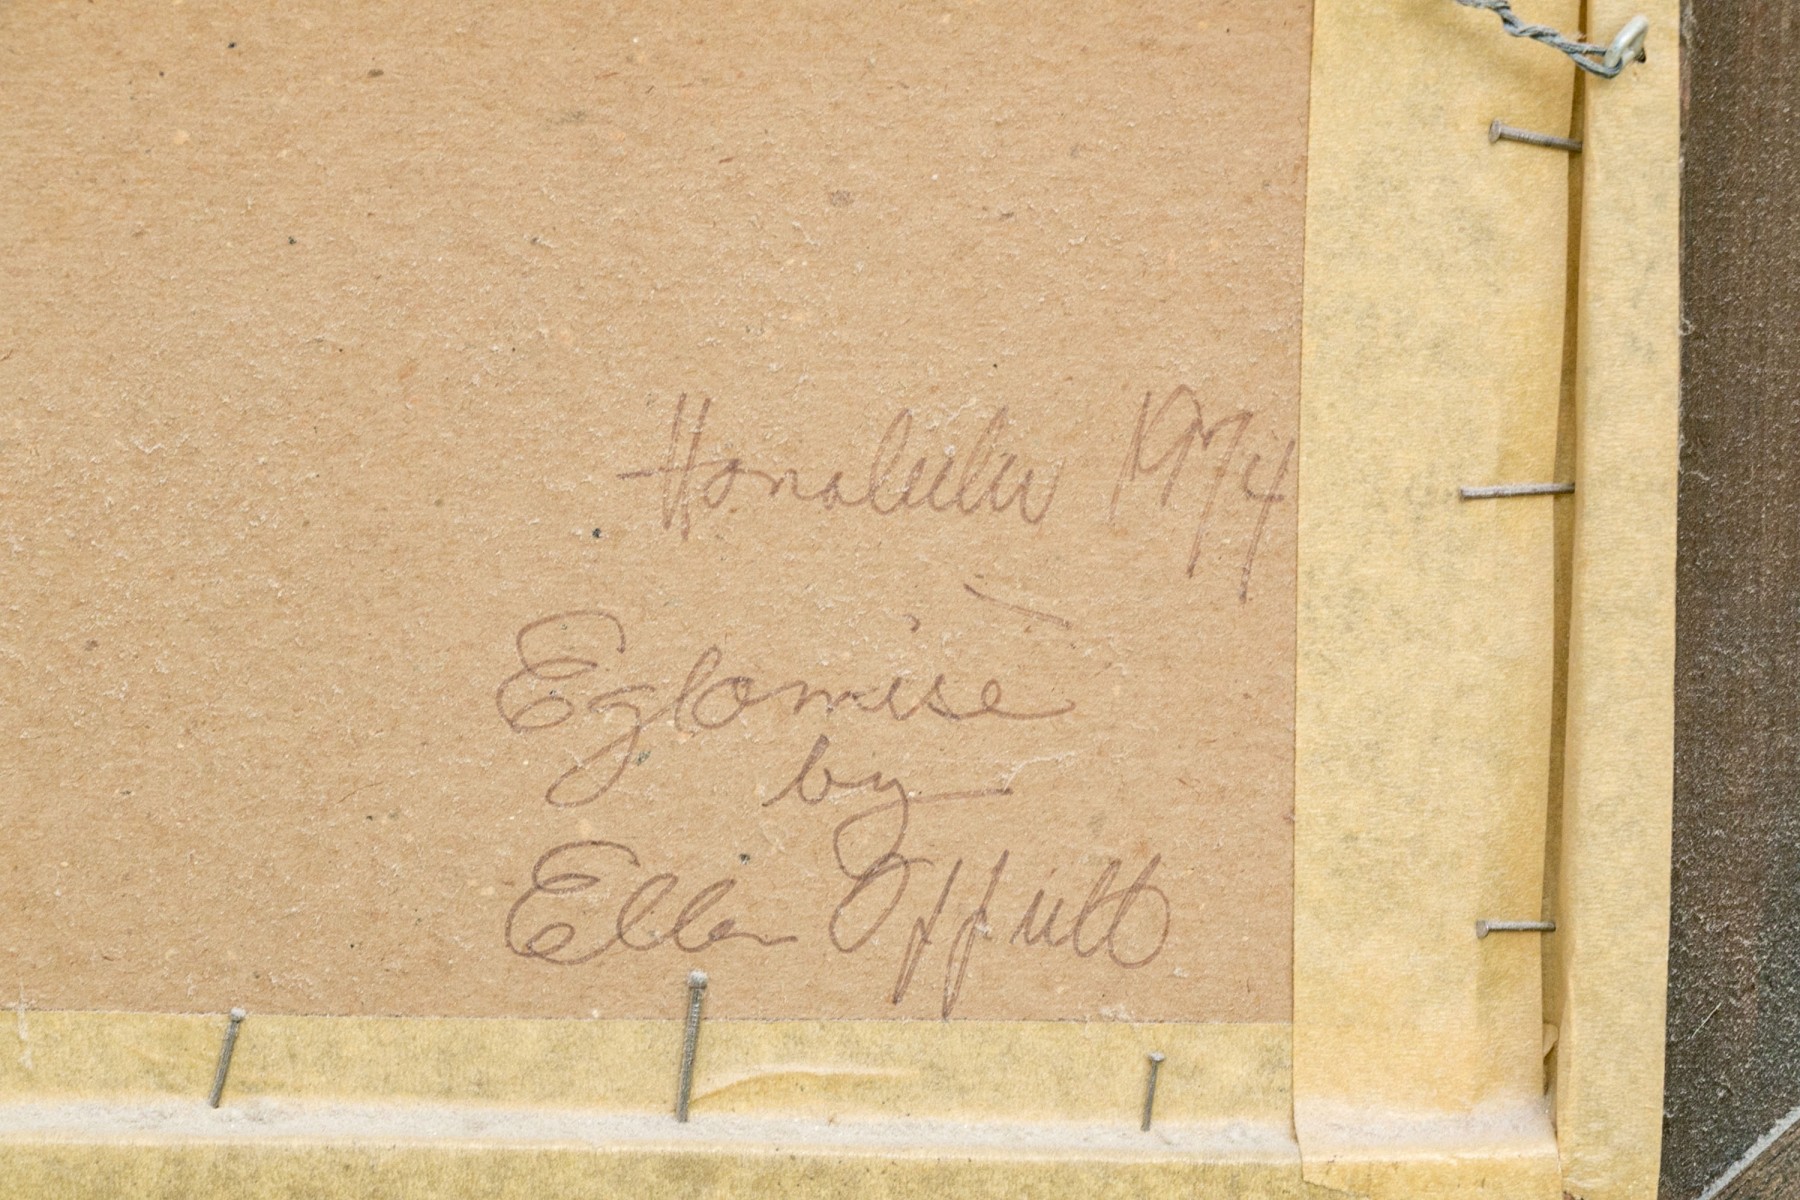 Honolulu 1974
Eglomisé
by
Ellen Offutt